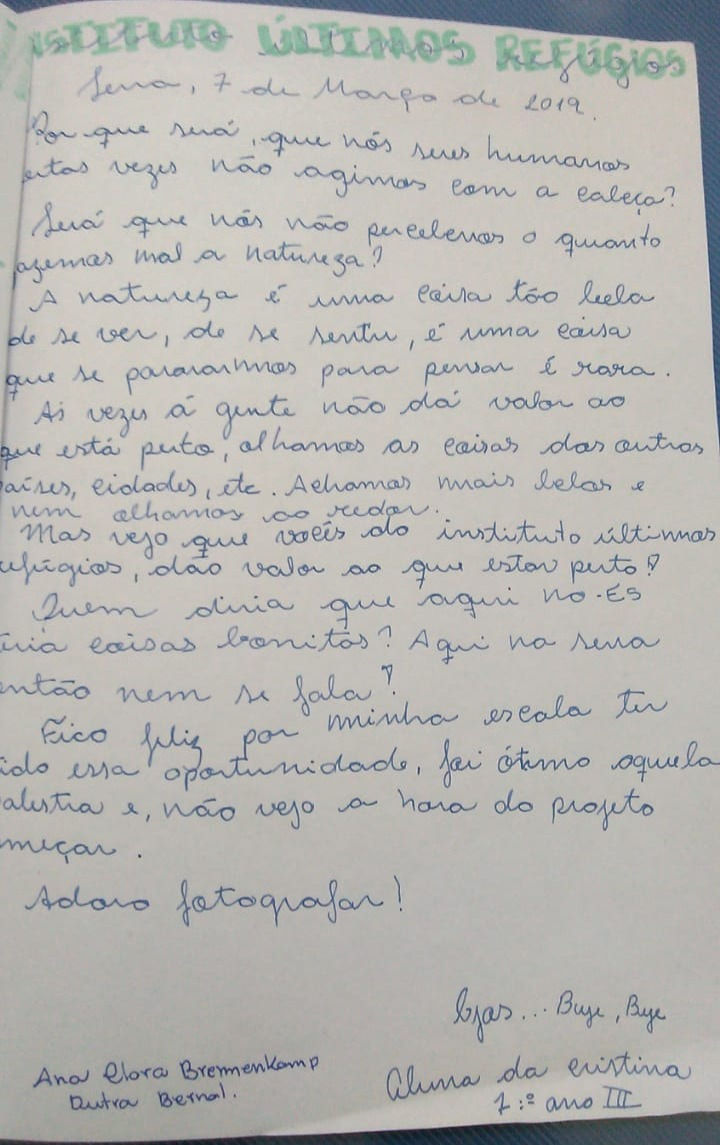 NSTITUTO ÚLTIMOS REFÚGIOS
Serra, 7 de Março de 2019.
Por que será, que nós seres humanos
ertas vezes não agimos com a cabeça?
Será que nós não percebemos o quanto
azemos mal a natureza?
A natureza é uma coisa tão bela
de se ver, de se sentir, é uma coisa
que se pararmos para pensar é rara.
As vezes á gente não dá valor ao
que está perto, olhamos as coisas das outros
aíses, cidades, etc. Achamos mais belas e
nem olhamos ao redor.
Mas vejo que vocês do instituto últimos
efúgios, dão valor ao que estar perto!
Quem diria que aqui no ES
eria coisas bonitas? Aqui na serra
então nem se fala!
Fico feliz por minha escola ter
ido essa oportunidade, foi ótimo aquela
alestra e, não vejo a hora do projeto
meçar.
Adoro fotografar!
bjos... Buye, Bye
Ana Clara Bremenkamp
Dutra Bernal.
Aluna da cristina
1:º ano III